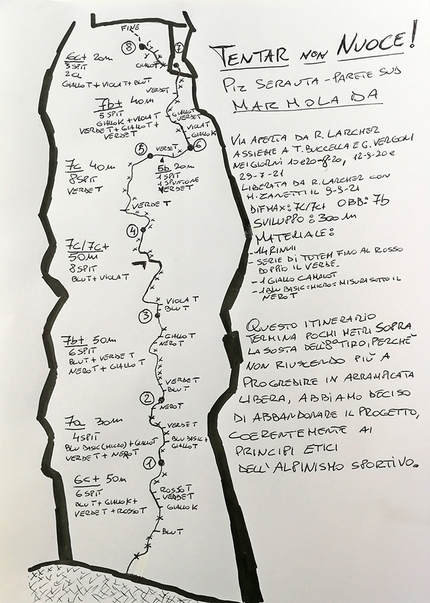 TENTAR NON NUOCE!
PIZ SERAUTA - PARETE SUD
MARMOLADA
VIA APERTA DA R. LARCHER
ASSIEME A T. BUCCELLA E G. VERGONI
NEI GIORNI
29-7-21
LIBERATA DA R. LARCHER CON
H. ZANETTI IL 9-9-21
DIFMAX: 7C/7C+ OBB: 7b
SVILUPPO: 300 m
MATERIALE:
- 14 RINVII
- SERIE DI TOTEM FINO AL ROSSO
DOPPIO IL VERDE
- 1 GIALLO CAMALOT
- 1 BLU BASIC (MICRO) MISURA SOTTO IL
NERO T
QUESTO ITINERARIO
TERMINA POCHI METRI SOPRA
LA SOSTA DELL'8° TIRO, PERCHÉ
NON RIUSCENDO PIÙ A
PROGREDIRE IN ARRAMPICATA
LIBERA, ABBIAMO DECISO
DI ABBANDONARE IL PROGETTO,
COERENTEMENTE AI
PRINCIPI ETICI
DELL'ALPINISMO SPORTIVO.
FINE
8
7
6c+ 20m
3 SPIT
2 CL
GIALLO T + VIOLA T + BLU T
GIALLO T
VERDE T
7b+ 40m
5 SPIT
GIALLO K + VIOLA T
VERDE T + GIALLO T +
VERDE T
GIALLO T
VERDE T
VIOLA T
GIALLO K
6
5
VERDE T
7c 40m
8 SPIT
VERDE T
6b 20m
1 SPIT
1 SPUNTONE
VERDE T
VERDE T
4
7c/7c+
50m
8 SPIT
BLU T + VIOLA T
VIOLA T
BLU T
3
7b+ 50m
6 SPIT
BLU T + VERDE T
NERO T + GIALLO T
GIALLO T
NERO T
VERDE T
BLU T
2
NERO T
7a 30m
4 SPIT
BLU BASIC (MICRO) + GIALLO T
VERDE T + NERO T
VERDE T
GIALLO T
BLU BASIC
1
6c+ 50m
6 SPIT
BLU T + GIALLO K +
VERDE T + ROSSO T
ROSSO T
VERDE T
GIALLO K
BLU T